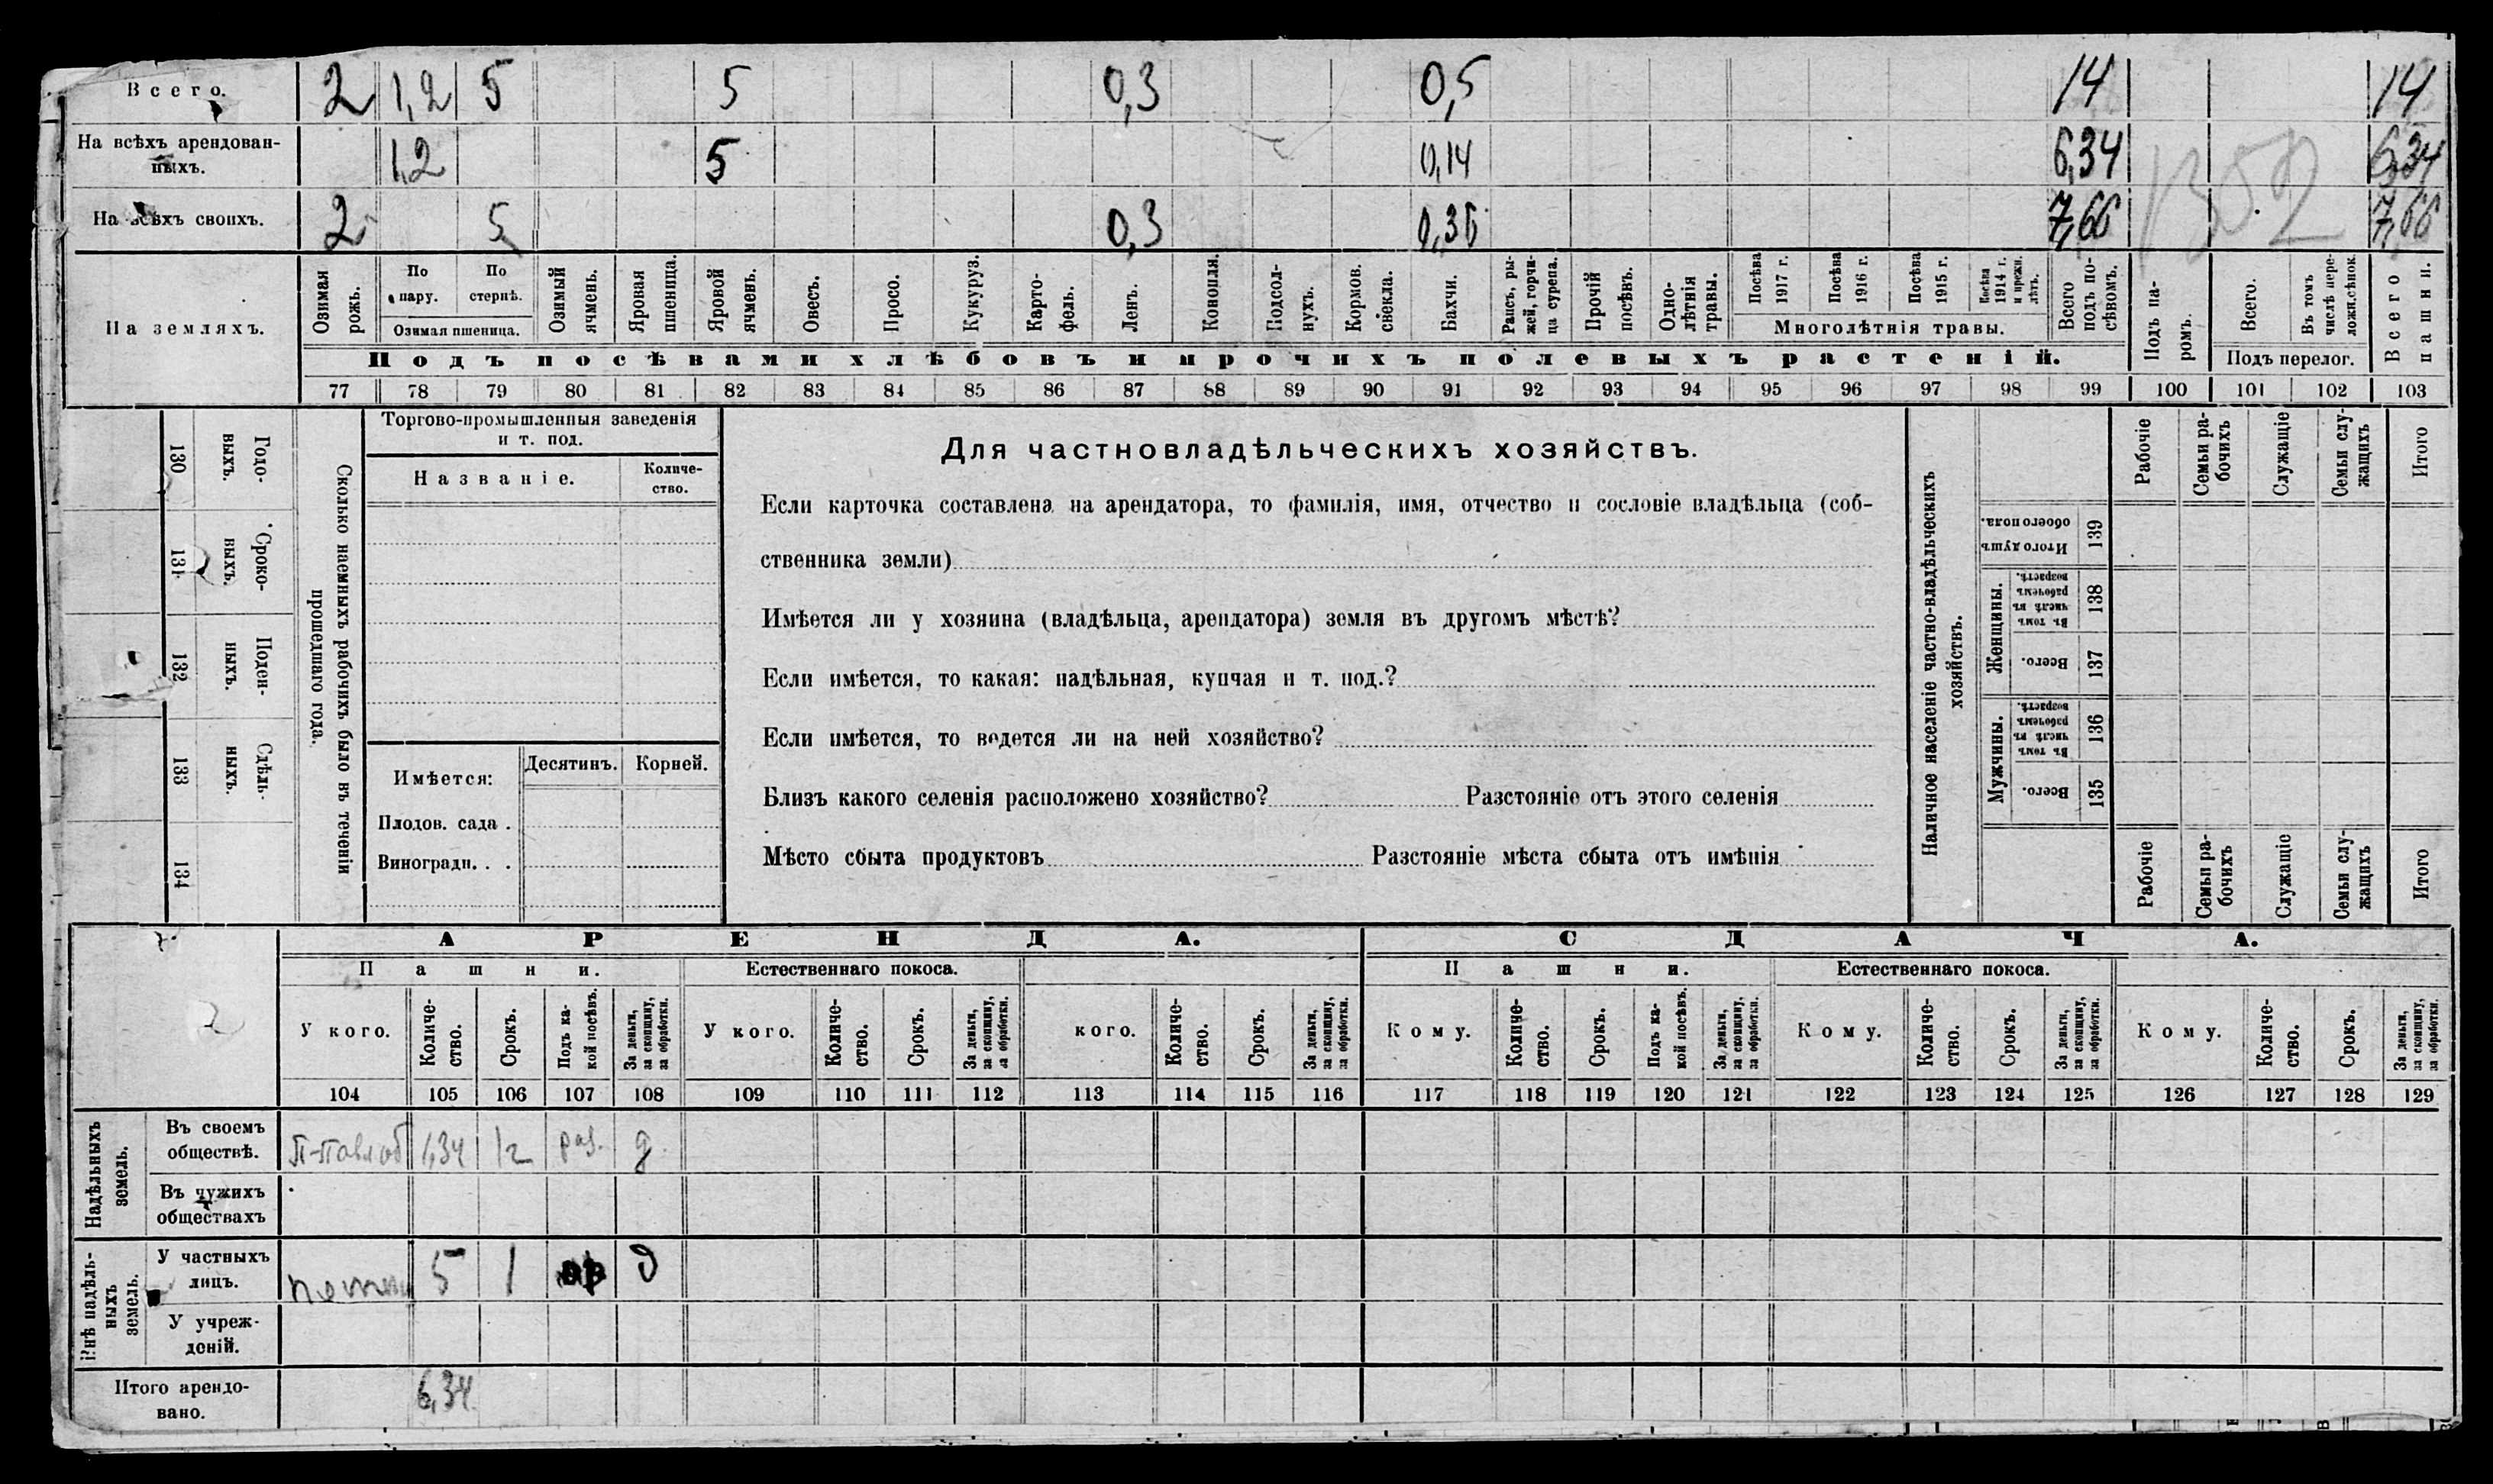 Всего. 2 1,2 5 5 0,3 0,5 14 14
На всѣхъ арендован-
ныхъ. 1,2 5 0,14 6,34 6,34
На всѣхъ своихъ. 2 5 0,3 0,36 7,66 7,66
1302
На земляхъ.
Озимая рожь.
По пару.
По стернѣ.
Озимая пшеница.
Озимый ячмень.
Яровая пшеница.
Яровой ячмень.
Овесъ.
Просо.
Кукуруз.
Карто-
фель.
Ленъ.
Конопля.
Подсол-
нухъ.
Кормов. свекла.
Бахчи.
Рапсъ, ры-
жей, горчи-
ца сурепа.
Прочій посѣвъ.
Одно-
лѣтнія травы.
Посѣва 1917 г.
Посѣва 1916 г.
Посѣва 1915 г.
Посѣва 1914 г. и прежн. лѣтъ.
Многолѣтнія травы.
Всего подъ по-
сѣвомъ.
Подъ па-
ромъ.
Всего.
Въ томъ числѣ пере-
ложн. сѣнок.
Подъ перелог.
Всего пашни.
Подъ посѣвами хлѣбовъ и прочихъ полевыхъ растеній.
77 78 79 80 81 82 83 84 85 86 87 88 89 90 91 92 93 94 95 96 97 98 99 100 101 102 103
130 Годо-
выхъ.
131 Сроко-
выхъ.
132 Поден-
ныхъ.
133 Сдѣль-
ныхъ.
134
Сколько наемныхъ рабочихъ было въ теченіи
прошедшаго года.
Торгово-промышленныя заведенія
и т. под.
Названіе.
Количе-
ство.
Имѣется:
Десятинъ. Корней.
Плодов. сада .
Виноградн. . .
Для частновладѣльческихъ хозяйствъ.
Если карточка составлена на арендатора, то фамилія, имя, отчество и сословіе владѣльца (соб-
ственника земли)
Имѣется ли у хозяина (владѣльца, арендатора) земля въ другомъ мѣстѣ?
Если имѣется, то какая: надѣльная, купчая и т. под.?
Если имѣется, то ведется ли на ней хозяйство?
Близъ какого селенія расположено хозяйство? Разстояніе отъ этого селенія
Мѣсто сбыта продуктовъ Разстояніе мѣста сбыта отъ имѣнія
Наличное населеніе частно-владѣльческихъ
хозяйствъ.
Рабочіе
Семьи ра-
бочихъ
Служащіе
Семьи слу-
жащихъ
Итого
Итого душъ обоего пола. 139
Женщины.
Въ томъ числѣ въ рабочемъ возрастѣ. 138
Всего. 137
Мужчины.
Въ томъ числѣ въ рабочемъ возрастѣ. 136
Всего. 135
Рабочіе
Семьи ра-
бочихъ
Служащіе
Семьи слу-
жащихъ
Итого
2
АРЕНДА. СДАЧА.
Пашни. Естественнаго покоса. Пашни. Естественнаго покоса.
У кого.
Количе-
ство.
Срокъ.
Подъ ка-
кой посѣвъ.
За деньги, за скопщину, за обработки.
У кого.
Количе-
ство.
Срокъ.
За деньги, за скопщину, за обработки.
кого.
Количе-
ство.
Срокъ.
За деньги, за скопщину, за обработки.
Кому.
Количе-
ство.
Срокъ.
Подъ ка-
кой посѣвъ.
За деньги, за скопщину, за обработки.
Кому.
Количе-
ство.
Срокъ.
За деньги, за скопщину, за обработки.
Кому.
Количе-
ство.
Срокъ.
За деньги, за скопщину, за обработки.
104 105 106 107 108 109 110 111 112 113 114 115 116 117 118 119 120 121 122 123 124 125 126 127 128 129
Надѣльныхъ
земель.
Въ своемъ
обществѣ. 1,34 1г раз. д.
Въ чужихъ
обществахъ
Внѣ надѣль-
ныхъ
земель.
У частныхъ
лицъ. 5 1 д
У учреж-
деній.
Итого арендо-
вано. 6,34